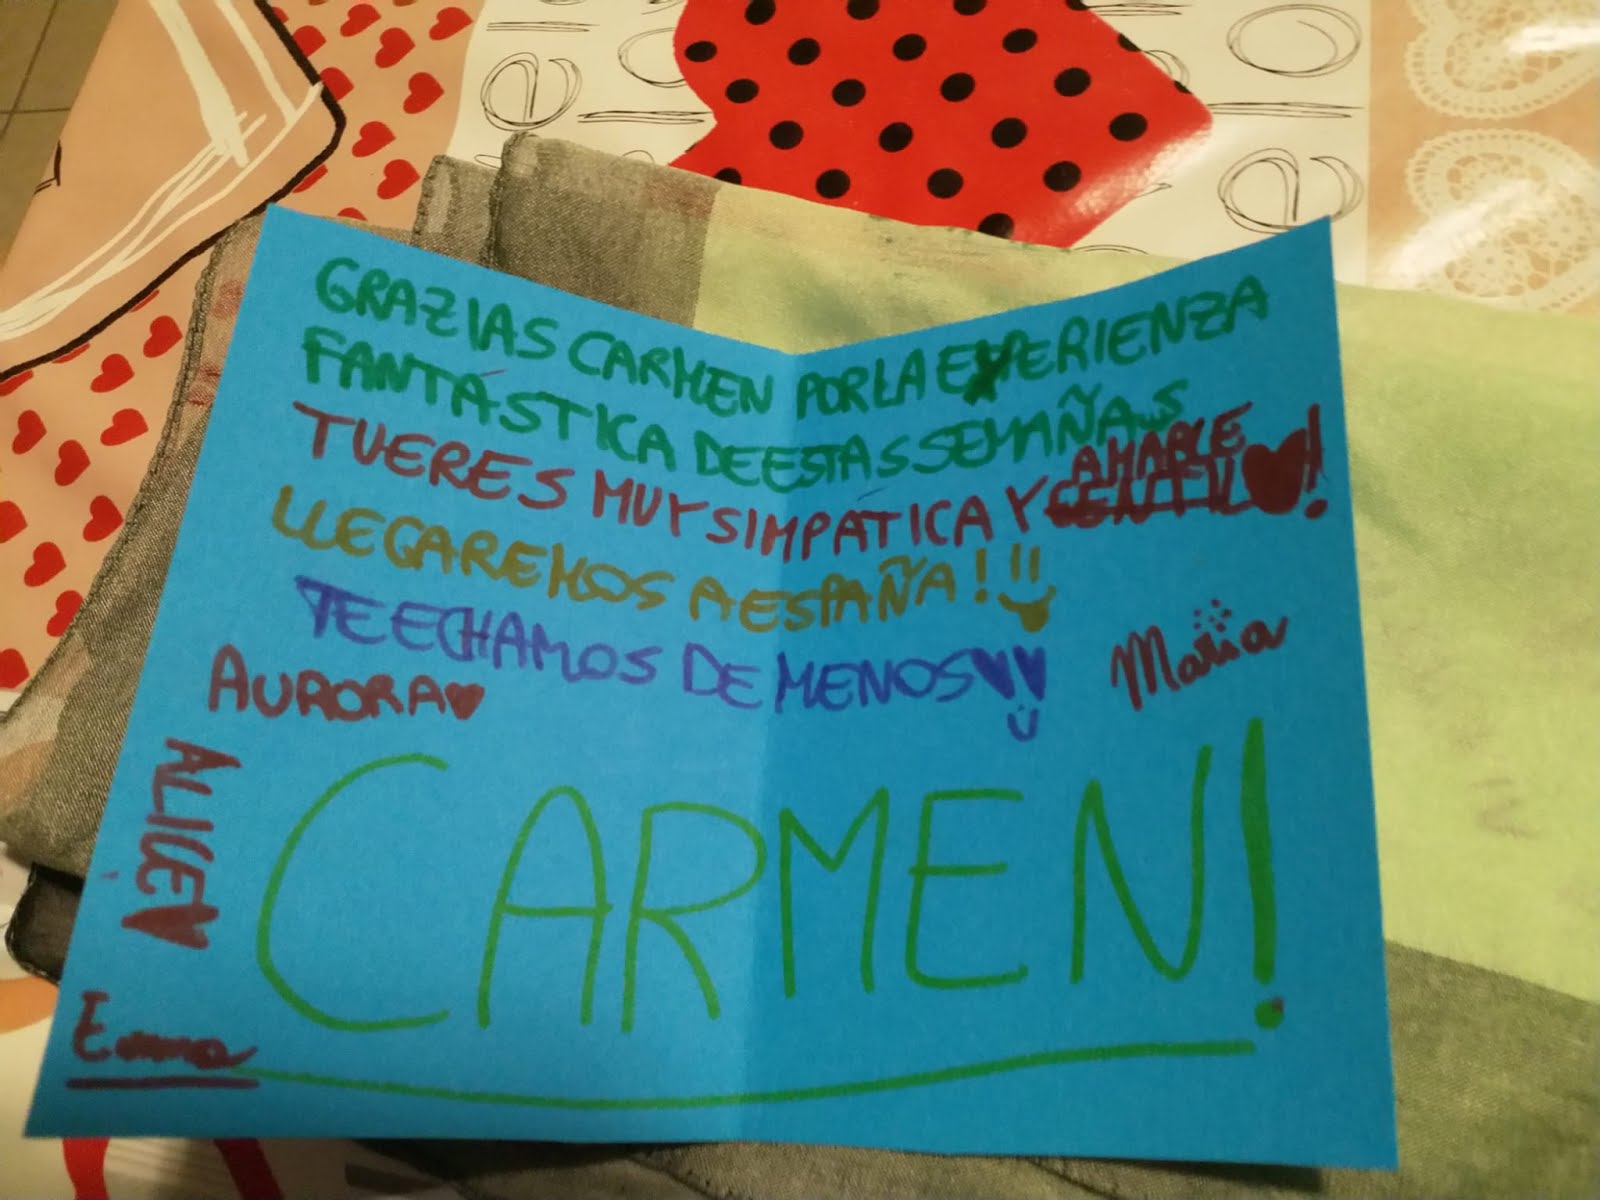 GRAZIAS CARMEN POR LA EXPERIENZA
FANTÁSTICA DE ESTAS SEMAÑAS
TU ERES MUY SIMPÁTICA Y AMABLE !
LLEGAREMOS A ESPAÑA! !!
TE ECHAMOS DE MENOS
AURORA
Maria
ALICE
Emma
CARMEN!